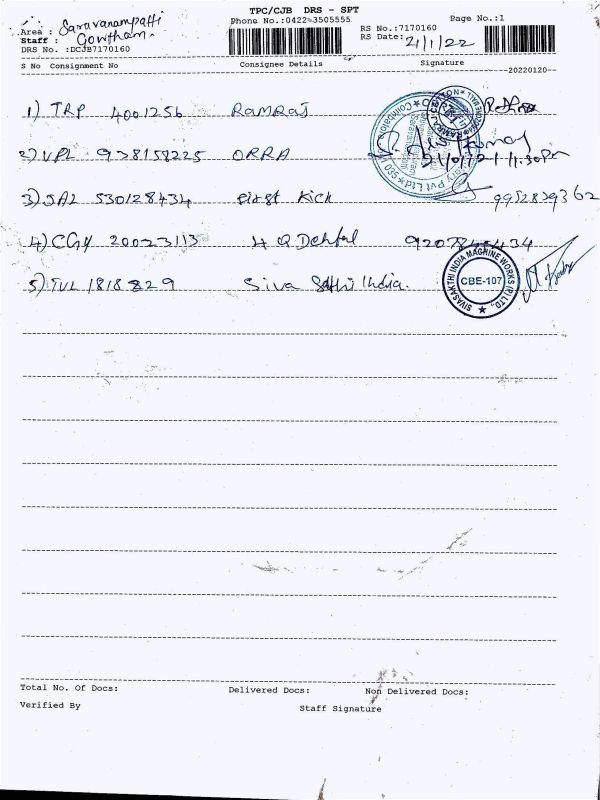 TPC/CJB DRS - SPT
Phone No.:0422%3505555 Page No.:1
Area : Saravanampatti
Staff : Gowtham.
DRS No. :DCJB7170160
RS No.:7170160
RS Date: 21/1/22
S No Consignment No Consignee Details Signature
20220120
1) TRP 4001256 RAMRAJ
2) VPL 938158225 ORRA
3) SAL 530128434 First Kick 9952839362
4) CGY 20023113 H Q Dental
5) TVL 1818829 Siva Sathi India.
SIVASAKTHI INDIA MACHINE WORKS (P) LTD.,
CBE-107
Total No. Of Docs: Delivered Docs: Non Delivered Docs:
Verified By Staff Signature